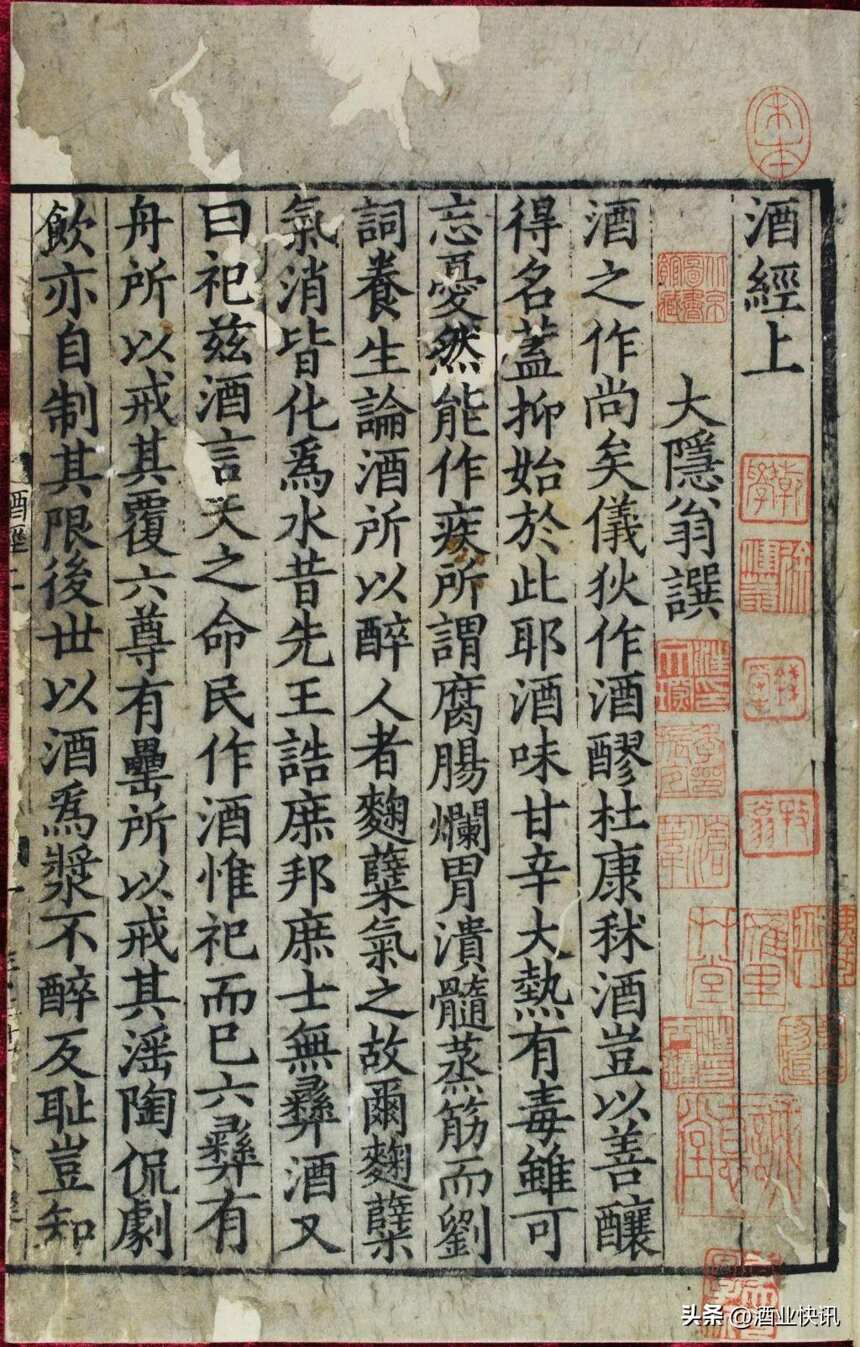 酒經上
大隱翁譔
酒之作尚矣儀狄作酒醪杜康秫酒豈以善釀
得名蓋抑始於此耶酒味甘辛大熱有毒雖可
忘憂然能作疾所謂腐腸爛胃潰髓蒸筋而劉
詞養生論酒所以醉人者麴糵氣之故爾麴糵
氣消皆化爲水昔先王誥庶邦庶士無彝酒又
曰祀兹酒言天之命民作酒惟祀而已六彝有
舟所以戒其覆六尊有罍所以戒其滛陶侃劇
飲亦自制其限後世以酒爲漿不醉反恥豈知
宋本
北京圖書館藏
頭条 @酒业快讯